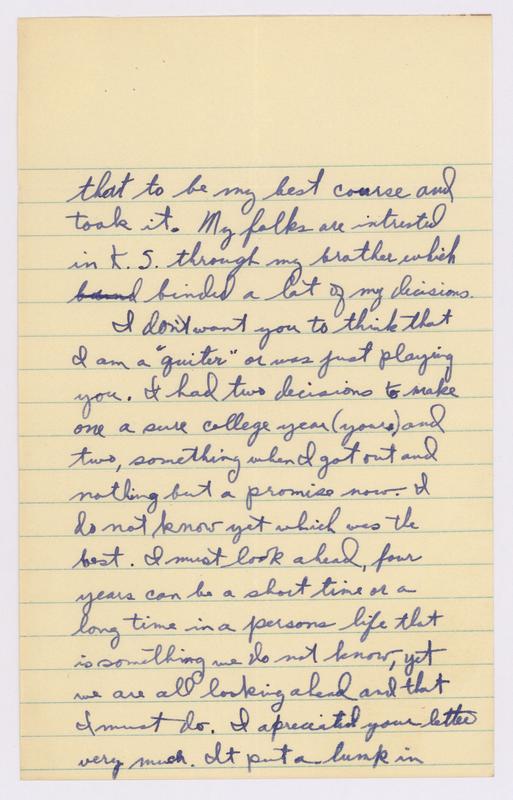 that to be my best course and
took it. My folks are intrested
in K. S. through my brother which
binded a lot of my decisions.
I don't want you to think that
I am a "quiter" or was just playing
you. I had two decisions to make
one a sure college year (yours) and
two, something when I got out and
nothing but a promise now. I
do not know yet which was the
best. I must look ahead, four
years can be a short time or a
long time in a persons life that
is something we do not know, yet
we are all looking ahead and that
I must do. I apreciated your letter
very much. It put a lump in